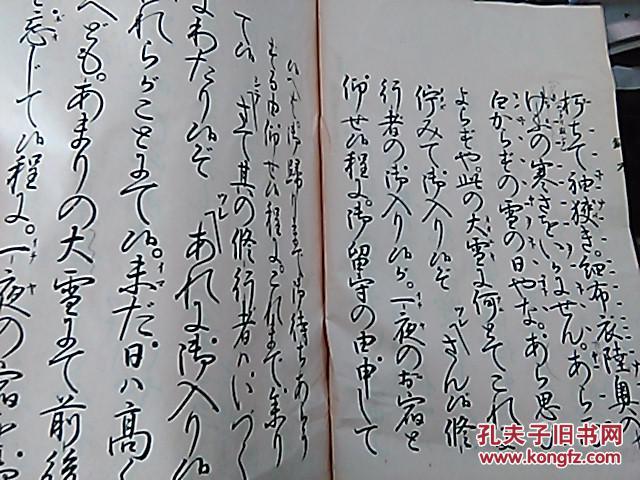 朽ちて袖狭き。細布衣陸奥の
けふの寒さをいかにせん。あら思
白からずの雪の日やな。あら思
よらずや。此の大雪に何とてこれに
佇みて御入り候ぞ さん候修
行者の御入り候が。一夜のお宿と
仰せ候程に。御留守の由申して
候へば御帰りまで御待ちあらう
ずる由仰せ候程に。これまで参り
て候 さて其の修行者はいづく
にわたり候ぞ あれに御入り候
われらがことにて候。未だ日は高く
へども。あまりの大雪にて前後
を忘じて候程に。一夜の宿
孔夫子旧书网
www.kongfz.com